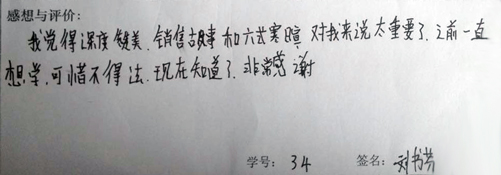 感想与评价：
我觉得深度赞美、销售故事和六式寒暄对我来说太重要了，之前一直
想学，可惜不得法，现在知道了，非常感谢
学号：34 签名：刘书芳